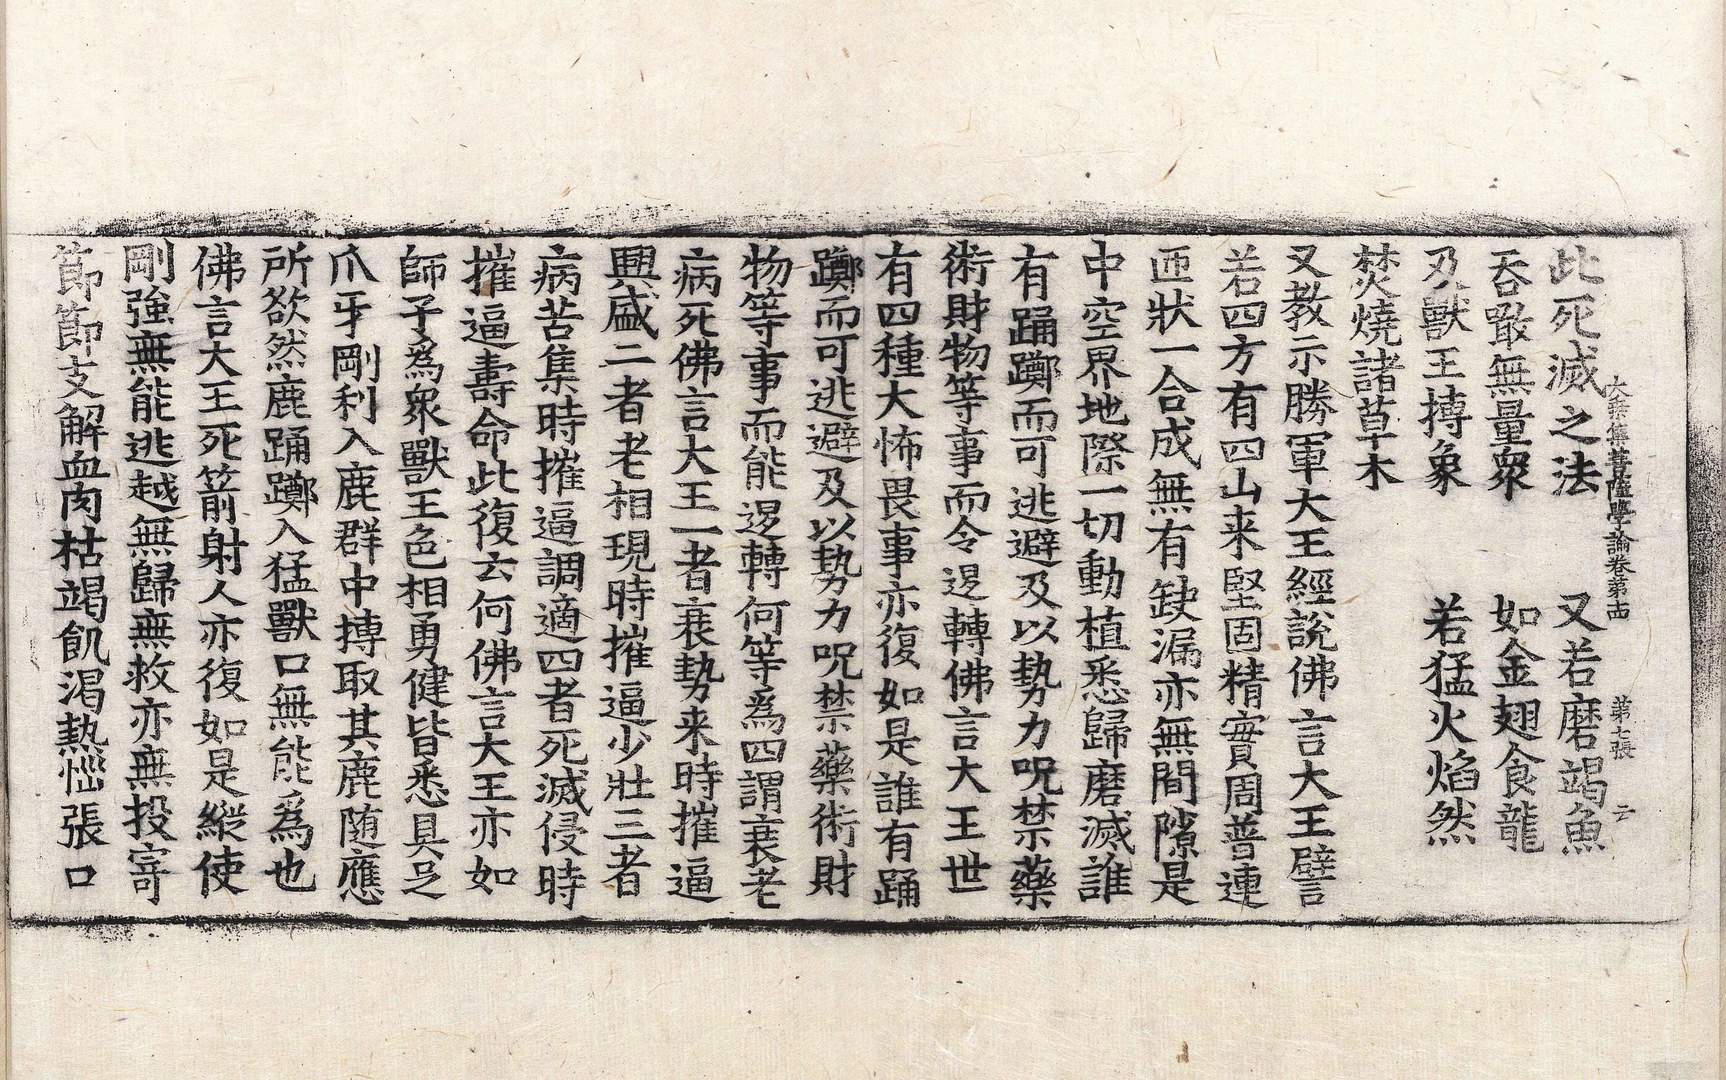 大乘集菩薩學論卷第十四　第七張　云
此死滅之法　又若磨竭魚
吞噉無量衆　如金翅食龍
及獸王搏象　若猛火焰然
焚燒諸草木
又教示勝軍大王經說佛言大王譬
若四方有四山来堅固精實周普連
匝狀一合成無有缺漏亦無間隙是
中空界地際一切動植悉歸磨滅誰
有踊躑而可逃避及以勢力呪禁藥
術財物等事而令迯轉佛言大王世
有四種大怖畏事亦復如是誰有踊
躑而可逃避及以勢力呪禁藥術財
物等事而能迯轉何等爲四謂衰老
病死佛言大王一者衰勢来時摧逼
興盛二者老相現時摧逼少壯三者
病苦集時摧逼調適四者死滅侵時
摧逼壽命此復云何佛言大王亦如
師子爲衆獸王色相勇健皆悉具足
爪牙剛利入鹿群中搏取其鹿随應
所欲然鹿踊躑入猛獸口無能爲也
佛言大王死箭射人亦復如是縱使
剛強無能逃越無歸無救亦無投寄
節節支解血肉枯竭飢渴熱惱張口